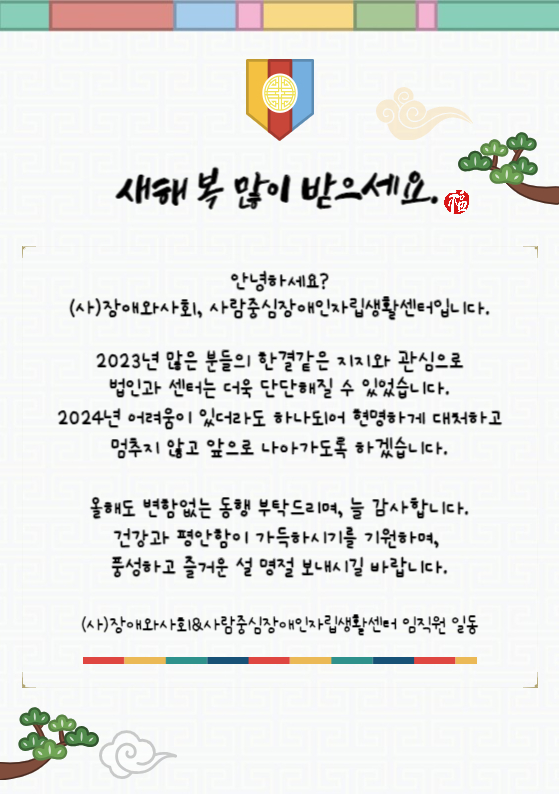 새해 복 많이 받으세요. 福
안녕하세요?
(사)장애와사회, 사람중심장애인자립생활센터입니다.
2023년 많은 분들의 한결같은 지지와 관심으로
법인과 센터는 더욱 단단해질 수 있었습니다.
2024년 어려움이 있더라도 하나되어 현명하게 대처하고
멈추지 않고 앞으로 나아가도록 하겠습니다.
올해도 변함없는 동행 부탁드리며, 늘 감사합니다.
건강과 평안함이 가득하시기를 기원하며,
풍성하고 즐거운 설 명절 보내시길 바랍니다.
(사)장애와사회&사람중심장애인자립생활센터 임직원 일동